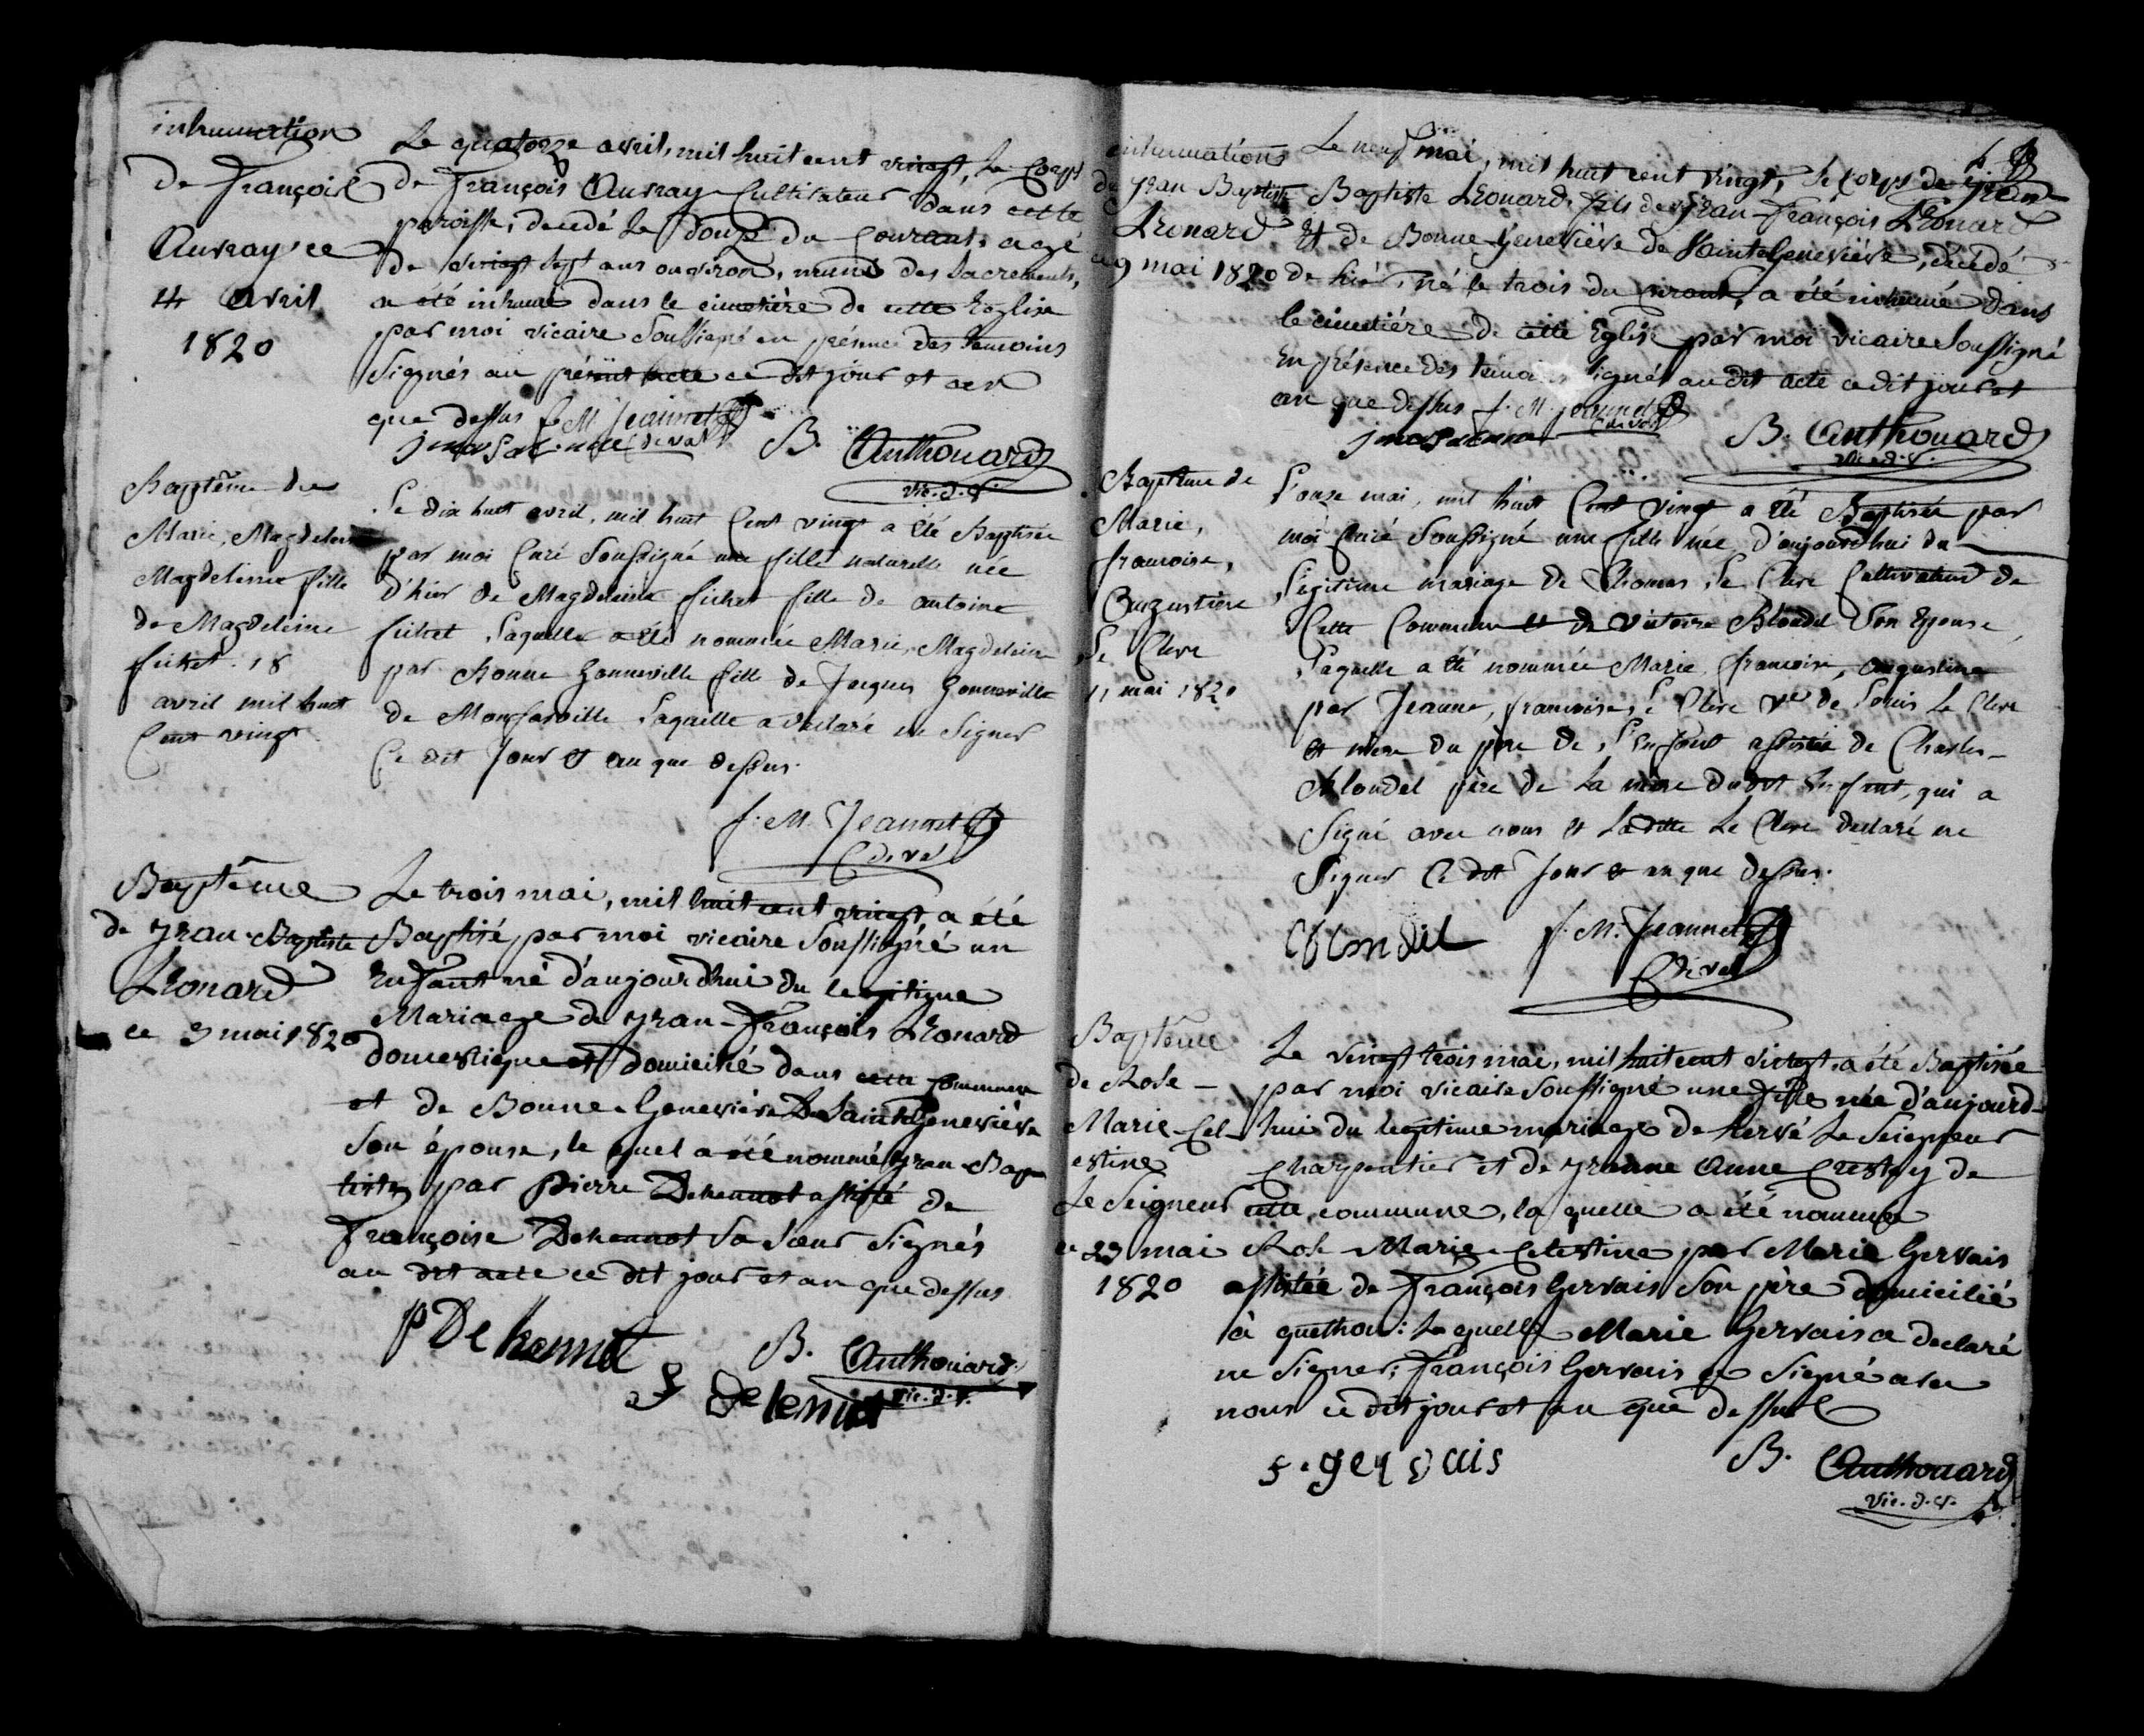 inhumation
de François
Auvray ce
14 avril
1820
Le quatorze avril, mil huit cent vingt, le corps
de François Auvray Cultivateur dans cette
paroisse, decedé le douze du courant, agé
de vingt sept ans environ, muni des Sacrements,
a été inhumé dans le cimetière de cette Eglise
par moi vicaire Soussigné en présence des temoins
Signés au présent acte ce dit jour et an
que dessus f. M. Jeannet
B. Anthouard
vic. d. v.
Baptême de
Marie, Magdeleine
Magdeleine fille
de Magdeleine
fichet. 18
avril mil huit
Cent vingt
Le dix huit avril, mil huit Cent vingt a été Baptisée
par moi Curé Soussigné une fille naturelle née
d'hier de Magdeleine fichet fille de antoine
fichet Laquelle a été nommée Marie, Magdeleine
par Bonne Gonneville fille de Jacques Gonneville
de Monfarville Laquelle a declaré ne Signer
Ce dit Jour et an que dessus.
f. M. Jeannet
C de val
Baptême
de Jean-Baptiste
Léonard
ce 3 mai 1820
Le trois mai, mil huit cent vingt, a été
Baptisé, par moi vicaire Soussigné un
Enfant né d'aujourdhui du legitime
Mariage de Jean-François Léonard
domestique et domicilié dans cette commune
et de Bonne Geneviève De Sainte Geneviève
Son épouse, le quel a été nommé Jean Bap
tiste par Pierre Dehennot assisté de
Françoise Dehennot Sa Sœur Signés
au dit acte ce dit jour et an que dessus
P De hennot
B. Anthouard
vic. d. v.
inhumations
de Jean Baptiste
Léonard
ce 9 mai 1820
Le neuf mai, mil huit cent vingt, le corps de Jean
Baptiste Léonard, fils de Jean-François Léonard
et de Bonne Geneviève de Sainte Geneviève, décédé
de hier, né le trois du courant, a été inhumé dans
le cimetière de cette Eglise par moi vicaire Soussigné
En présence des témoins Signés au dit acte ce dit jour et
an que dessus f. M. Jeannet
C de val
B. Anthouard
vic. d. v.
Baptême de
Marie,
francoise,
Augustine
Le Clerc
11 mai 1820
L'onze mai, mil huit Cent vingt a été Baptisée par
moi Curé Soussigné une fille née d'aujourdhui du
Legitime mariage de Thomas Le Clerc Cultivateur de
Cette Commune et de Victoire Blondel Son Epouse,
Laquelle a été nommée Marie, francoise, augustine
par Jeanne, francoise, Le Clerc Ve de Louis Le Clerc
et mère du père de L'Enfant assistée de Charles
Blondel père de La mère dudit Enfant, qui a
Signé avec nous et Ladite Le Clerc declaré ne
Signer Ce dit Jour et an que dessus.
f. M. Jeannet
C de val
Baptême
de Rose
Marie-Cel-
estine
Le Seigneur
ce 23 mai
1820
Le vingt trois mai, mil huit cent vingt, a été Baptisée
par moi vicaire Soussigné une fille née d'aujourd-
hui du legitime mariage de hervé Le Seigneur
charpentier et de Jeanne Anne Crestey de
cette commune, la quelle a été nommée
Rose Marie Celestine par Marie Gervais
assistée de François Gervais Son père domicilié
à quethou: la quelle Marie Gervais a declaré
ne Signer; François Gervais a Signé avec
nous ce dit jour et an que dessus
f. gervais
B. Anthouard
vic. d. v.